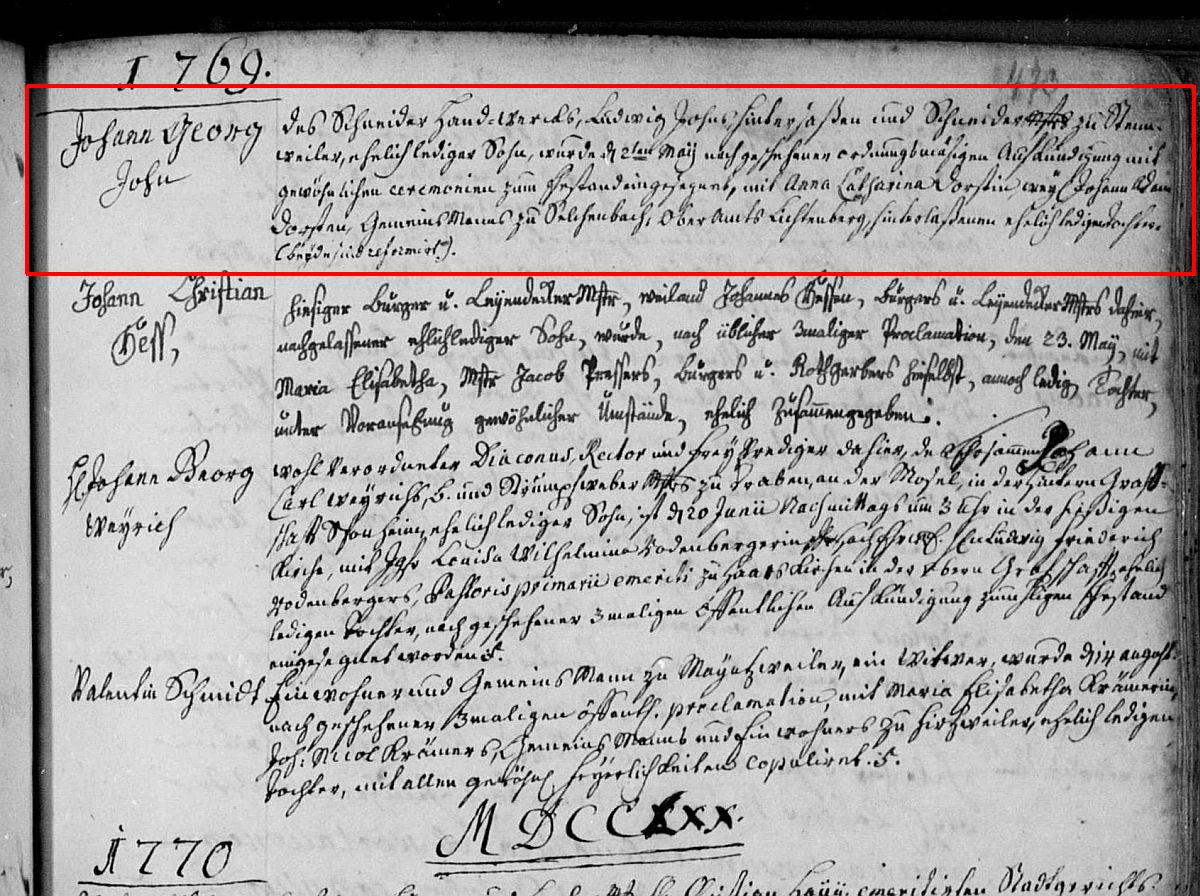 1769.
Johann Georg
John
des Schneider Handwercks, Ludwig Johns, hintersaßen und Schneider Mstrs zu Stenn-
weiler, ehelich lediger Sohn, wurde d 2ten Maij nach geschehener ordnungsmäsigen Auskündigung mit
gewöhnlichen ceremonien zum Ehestand eingesegnet, mit Anna Catharina Dorstin, weyl. Johann Adam
Dorsten, Gemeins Manns zu Selchenbach, Ober Amts Lichtenberg, hinterlaßenen ehelich ledigen Tochter.
(beyde sind reformirt.)
Johann Christian
Hess,
hiesiger Burger u. Leyendecker Mstr, weiland Johannes Hessen, Burgers u. Leyendecker Mstrs dahier,
nachgelassener ehlichlediger Sohn, wurde, nach üblicher 3maliger Proclamation, den 23. May, mit
Maria Elisabetha, Mstr Jacob Pressers, Burgers u. Rothgerbers hieselbst, annoch ledig, Tochter,
unter Voransetzung gewöhnlicher Umstände, ehelich zusammengegeben.
H. Johann Georg
Weyrich
wohl Verordneter Diaconus, Rector und Frey Prediger dahier, Johann
Carl Weyrichs, B. und Strumpfweber Mstrs zu Traben, an der Mosel, in der Hintern Graff-
schafft Sponheim, ehelich lediger Sohn, ist d 20 Junii Nachmittags um 3 Uhr in der hiesigen
Kirche, mit Jgfr Louisa Wilhelmina Rodenbergerin, H. Ludwig Friederich
Rodenbergers, Pastoris primarii emeriti zu Haaskirchen in der obern Grafschafft, ehelich
ledigen Tochter, nach geschehener 3maligen öffentlichen Auskündigung zum hligen Ehestand
eingesegnet worden.
Valentin Schmidt
Einwohner und Gemeins Mann zu Maynzweiler, ein Witwer, wurde d 14 august.
nach geschehener 3maligen öffentl. proclamation, mit Maria Elisabetha Krämerin,
Joh: Nicol Krämers, Gemeins Manns und Einwohners zu Hirzweiler, ehelich ledigen
Tochter, mit allen gewöhnl Feyerlichkeiten copulirt.
MDCCLXX.
1770
Christian emeritirten Stadtgerichts